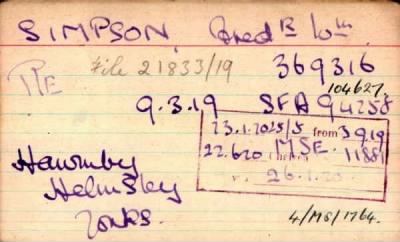 SIMPSON, Fred K Wm
RE File 21833/19 369316
104627.
9.3.19 SFA 94258
23.1.2025/5 from 3919
22.620 MSE. 11881
26.1.20
Hawnby
Helmsley
Yorks.
4/MS/1764.